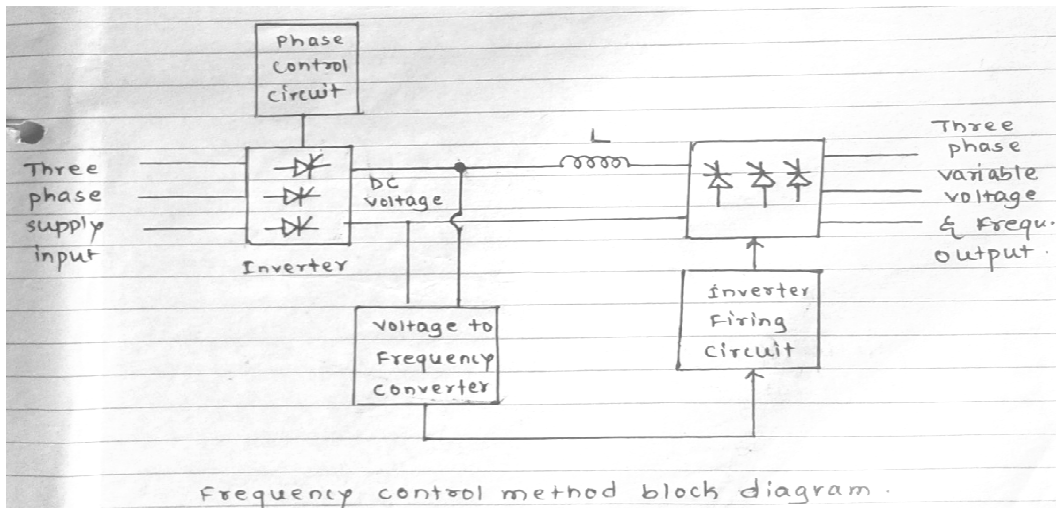 Phase
Control
Circuit
Three
phase
supply
input
Inverter
DC
voltage
L
Three
phase
variable
voltage
& Frequ.
output.
Voltage to
Frequency
Converter
Inverter
Firing
Circuit
Frequency control method block diagram.